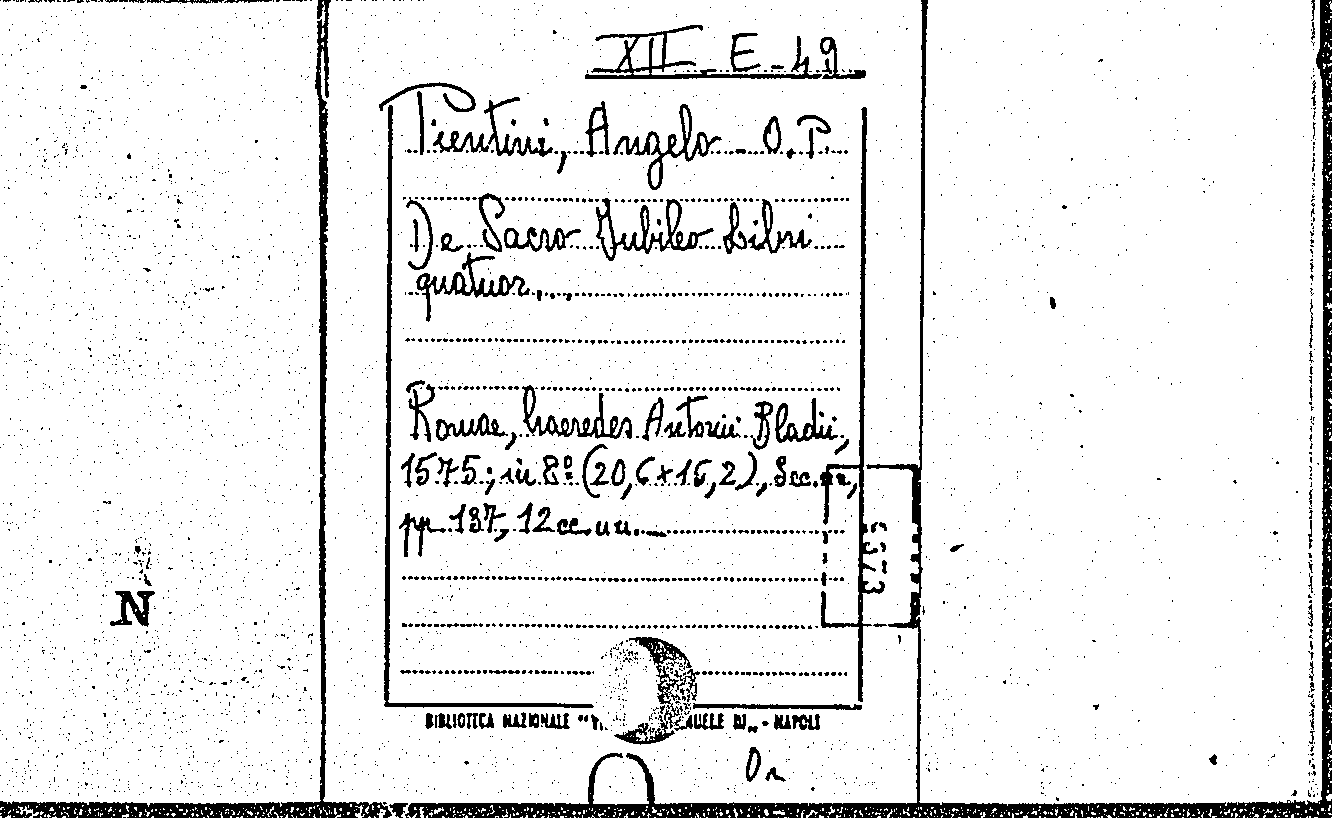 XII - E - 49
Pientini, Angelo - O.P.
De Sacro Jubileo Libri
quatuor...
Romae, haeredes Antonii Bladii,
1575; in 8º (20,6x15,2), 8cc.nn,
pp 137, 12 cc. nn.
5573
N
BIBLIOTECA NAZIONALE "VI NUELE III„ - NAPOLI